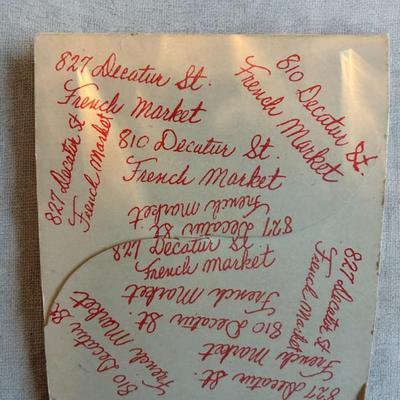 827 Decatur St.
French Market
810 Decatur St.
French Market
827 Decatur St
French Market
810 Decatur St.
French Market
827 Decatur St.
French Market
827 Decatur St.
French Market
810 Decatur St.
French Market
827 Decatur St
French Market
810 Decatur St.
French Market
827 Decatur St.
French Market